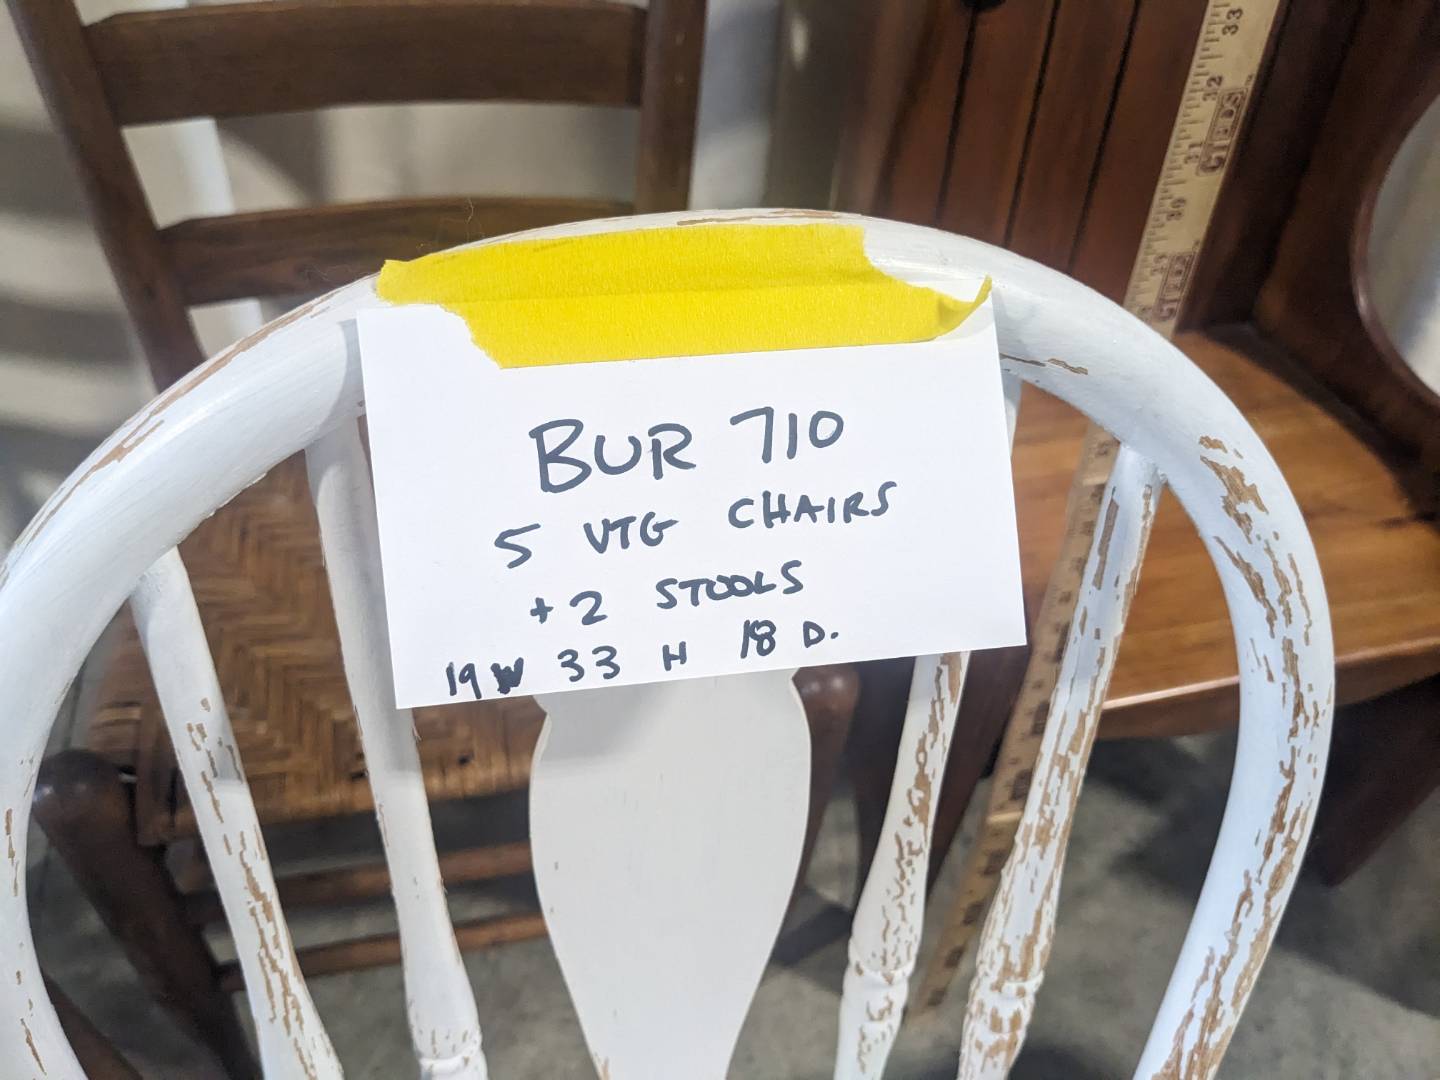 BUR 710
5 VTG CHAIRS
+ 2 STOOLS
19 W 33 H 18 D.
33
32
31
30